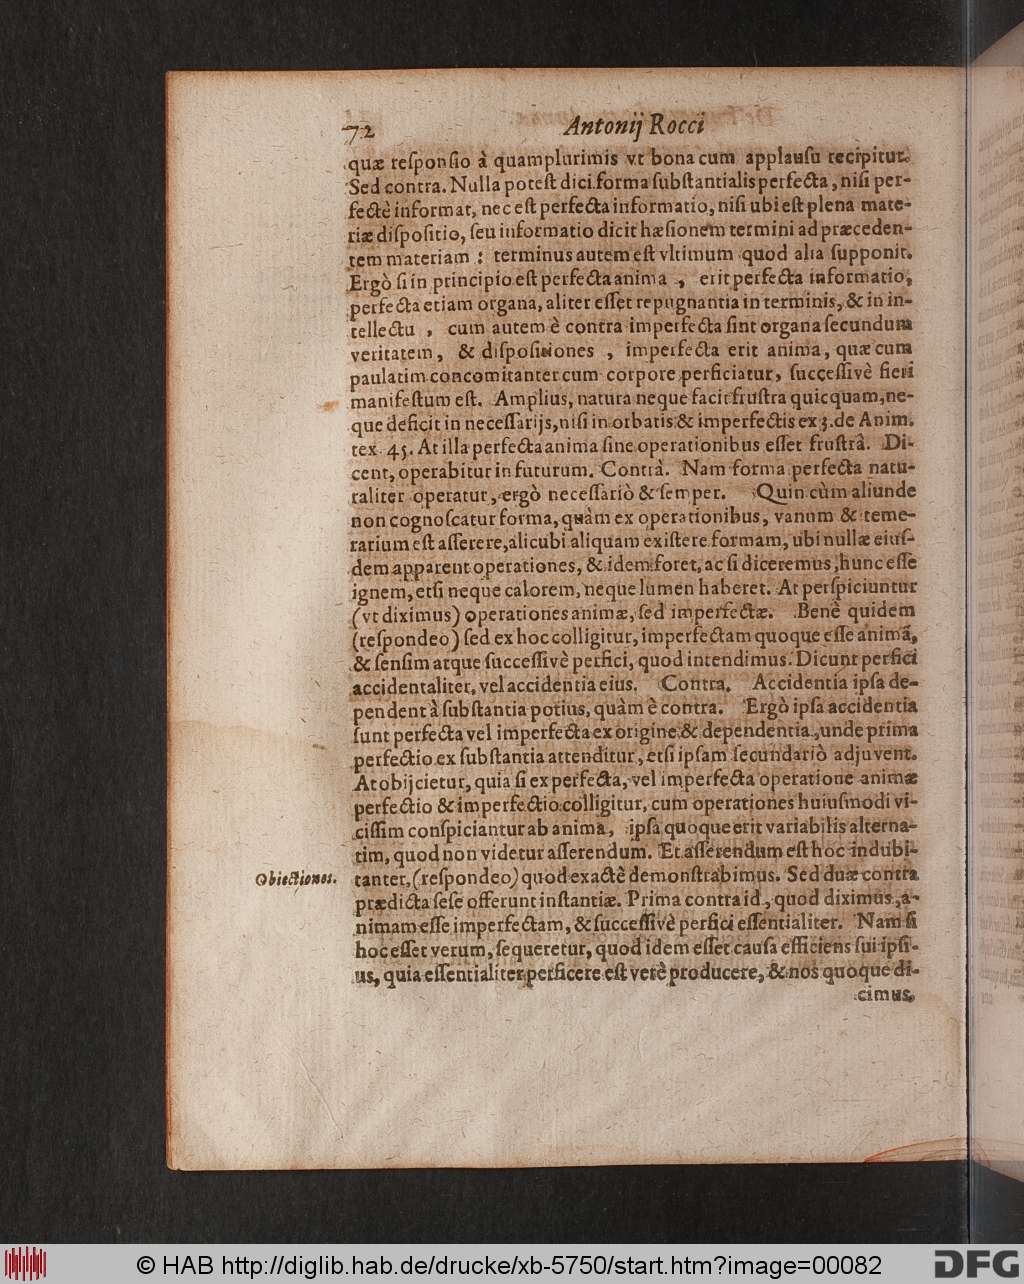 72 Antonij Rocci
quæ reſponſio à quamplurimis vt bona cum applauſu recipitur.
Sed contra. Nulla poteſt dici forma ſubſtantialis perfecta, niſi per-
fectè informat, nec eſt perfecta informatio, niſi ubi eſt plena mate-
riæ diſpoſitio, ſeu informatio dicit hæſionem termini ad præceden-
tem materiam : terminus autem eſt vltimum quod alia ſupponit.
Ergò ſi in principio eſt perfecta anima , erit perfecta informatio,
perfecta etiam organa, aliter eſſet repugnantia in terminis, & in in-
tellectu , cum autem è contra imperfecta ſint organa ſecundum
veritatem, & diſpoſitiones , imperfecta erit anima, quæ cum
paulatim concomitanter cum corpore perficiatur, ſucceſſivè fieri
manifeſtum eſt. Amplius, natura neque facit fruſtra quicquam, ne-
que deficit in neceſſarijs, niſi in orbatis & imperfectis ex 3. de Anim.
tex. 45. At illa perfecta anima ſine operationibus eſſet fruſtrà. Di-
cent, operabitur in futurum. Contrà. Nam forma perfecta natu-
raliter operatur, ergò neceſſariò & ſemper. Quin cùm aliunde
non cognoſcatur forma, quàm ex operationibus, vanum & teme-
rarium eſt aſſerere, alicubi aliquam exiſtere formam, ubi nullæ eiuſ-
dem apparent operationes, & idem foret, ac ſi diceremus, hunc eſſe
ignem, etſi neque calorem, neque lumen haberet. At perſpiciuntur
(vt diximus) operationes animæ, ſed imperfectæ. Benè quidem
(reſpondeo) ſed ex hoc colligitur, imperfectam quoque eſſe animã,
& ſenſim atque ſucceſſivè perfici, quod intendimus. Dicunt perfici
accidentaliter, vel accidentia eius. Contra. Accidentia ipſa de-
pendent à ſubſtantia potius, quàm è contra. Ergò ipſa accidentia
ſunt perfecta vel imperfecta ex origine & dependentia, unde prima
perfectio ex ſubſtantia attenditur, etſi ipſam ſecundariò adjuvent.
At obijcietur, quia ſi ex perfecta, vel imperfecta operatione animæ
perfectio & imperfectio colligitur, cum operationes huiuſmodi vi-
ciſſim conſpiciantur ab anima, ipſa quoque erit variabilis alterna-
tim, quod non videtur aſſerendum. Et aſſerendum eſt hoc indubi-
Obiectiones. tanter, (reſpondeo) quod exactè demonſtrabimus. Sed duæ contra
prædicta ſeſe offerunt inſtantiæ. Prima contra id, quod diximus, a-
nimam eſſe imperfectam, & ſucceſſivè perfici eſſentialiter. Nam ſi
hoc eſſet verum, ſequeretur, quod idem eſſet cauſa efficiens ſui ipſi-
us, quia eſſentialiter perficere eſt verè producere, & nos quoque di-
cimus,
© HAB http://diglib.hab.de/drucke/xb-5750/start.htm?image=00082 DFG